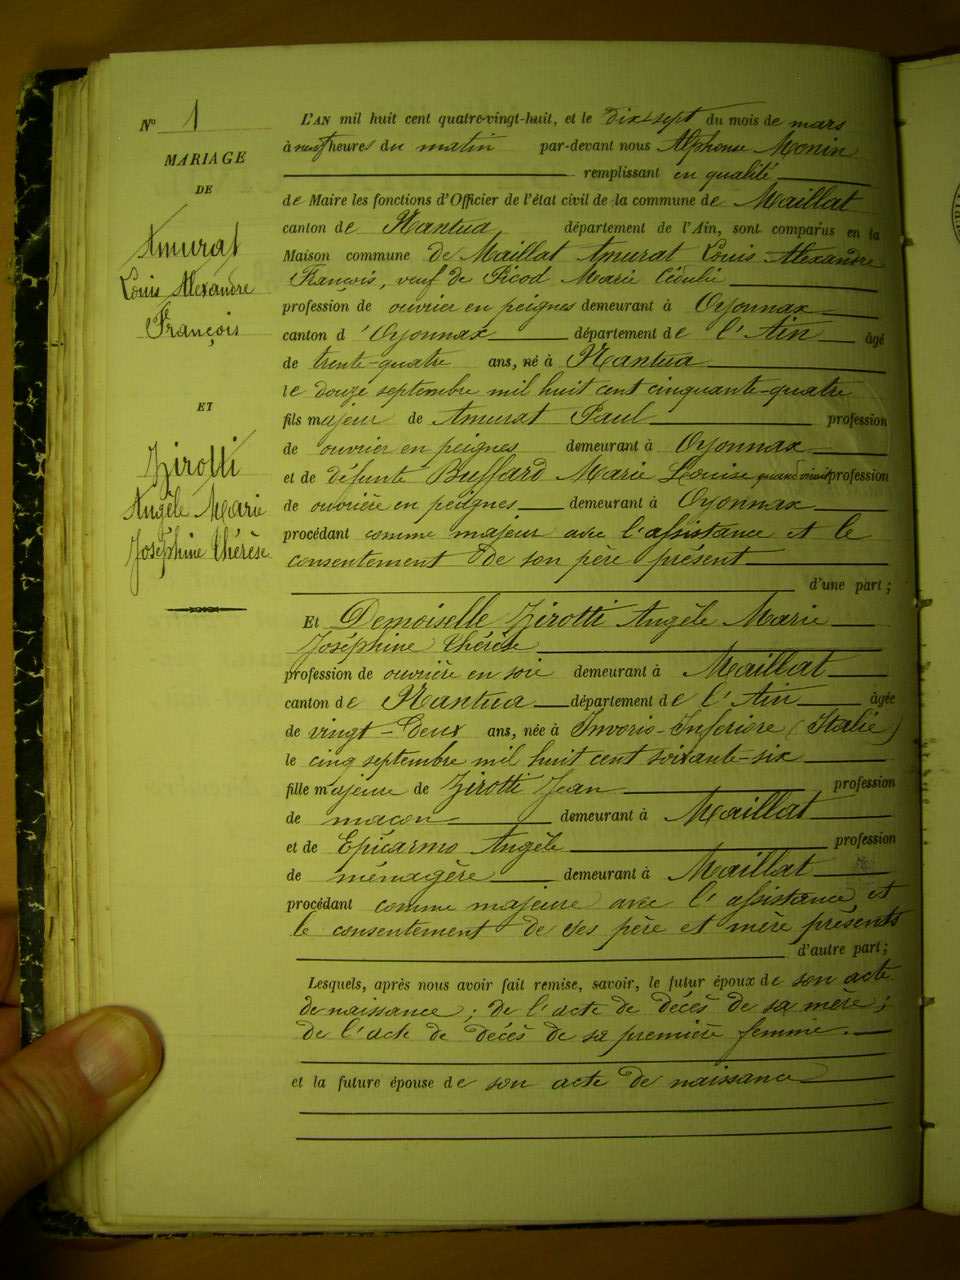 N° 1
MARIAGE
DE
Amurat
Louis Alexandre
François
ET
Zirotti
Angèle Marie
Joséphine Thérèse
L'AN mil huit cent quatre-vingt-huit, et le dix-sept du mois de mars
à neuf heures du matin par-devant nous Alphonse Monin
remplissant en qualité
de Maire les fonctions d'Officier de l'état civil de la commune de Maillat
canton de Nantua, département de l'Ain, sont comparus en la
Maison commune de Maillat Amurat Louis Alexandre
François, veuf de Picod Marie
profession de ouvrier en peignes demeurant à Oyonnax
canton d'Oyonnax département de l'Ain âgé
de trente-quatre ans, né à Nantua
le douze septembre mil huit cent cinquante-quatre
fils majeur de Amurat Paul profession
de ouvrier en peignes demeurant à Oyonnax
et de défunte Buffard Marie Louise quand vivait profession
de ouvrière en peignes demeurant à Oyonnax
procédant comme majeur avec l'assistance et le
consentement de son père présent
d'une part;
Et Demoiselle Zirotti Angèle Marie
Joséphine Thérèse
profession de ouvrière en soie demeurant à Maillat
canton de Nantua département de l'Ain âgée
de vingt-deux ans, née à Invorio-Inferiore (Italie)
le cinq septembre mil huit cent soixante-six
fille majeure de Zirotti Jean profession
de maçon demeurant à Maillat
et de Epicarmo Angèle profession
de ménagère demeurant à Maillat
procédant comme majeure avec l'assistance et
le consentement de ses père et mère présents
d'autre part;
Lesquels, après nous avoir fait remise, savoir, le futur époux de son acte
de naissance; de l'acte de décès de sa mère;
de l'acte de décès de sa première femme.
et la future épouse de son acte de naissance